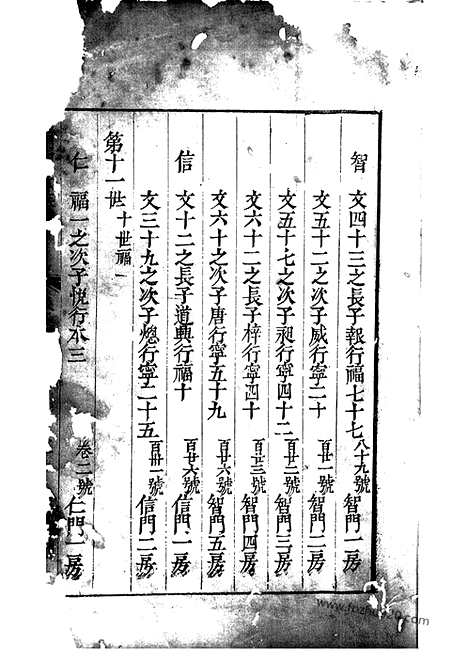 智 文四十三之長子報行福七十七 八十九號 智門一房
文五十二之次子威行寧二十 百廿一號 智門二房
文五十七之次子昶行寧四十二 百廿二號 智門三房
文六十二之長子梓行寧四十 百廿三號 智門四房
文六十之次子唐行寧五十九 百廿六號 智門五房
信 文十二之長子道興行福十 百廿六號 信門一房
文三十九之次子總行寧二十五 百卅一號 信門二房
第十一世 十世福一
仁 福一之次子悅行承三 卷二號 仁門一房